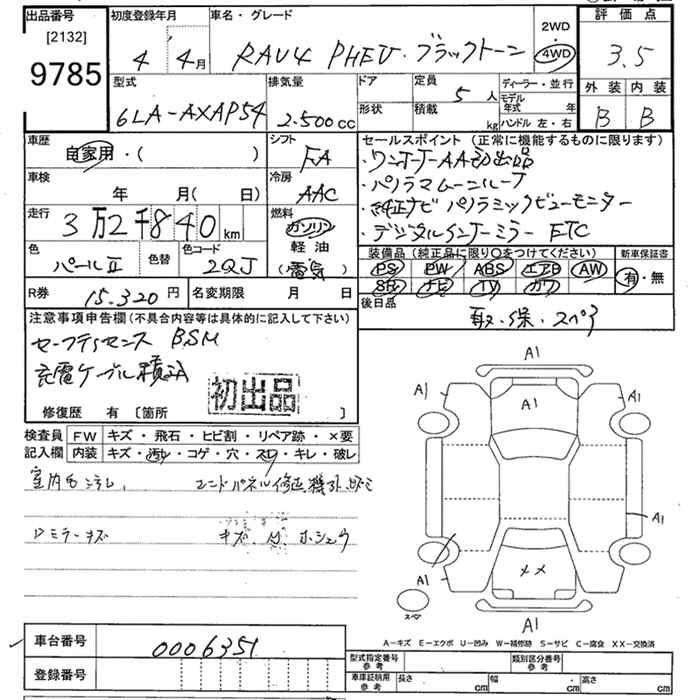 出品番号
[2132]
9785
初度登録年月
4 年 4月
車名・グレード
RAV4 PHEV・ブラックトーン
2WD
4WD
評価点
3.5
外装 内装
B B
型式
6LA-AXAP54
排気量
2.500cc
ドア
形状
定員
5人
積載
kg
ディーラー・並行
モデル年式 年
ハンドル 左・右
車歴
自家用・( )
シフト
FA
車検
年 月( 日)
冷房
AAC
走行
3万2千840km
燃料
ガソリン
軽油
(電気)
色
パールⅡ
色替
色コード
2QJ
R券
15.320円
名変期限 月 日
セールスポイント (正常に機能するものに限ります)
・ワンオーナーAA初出品
・パノラマムーンルーフ
・純正ナビ パノラミックビューモニター
・デジタルインナーミラー ETC
装備品(純正品に限り○をつけてください)
PS PW ABS エアB AW
SR ナビ TV カワ
新車保証書
有・無
後日品
取・保・スペア
注意事項申告欄(不具合内容等は具体的に記入して下さい)
セーフティセンス BSM
充電ケーブル積込
初出品
修復歴 有 [箇所 ]
検査員記入欄
FW キズ・飛石・ヒビ割・リペア跡・×要
内装 キズ・汚れ・コゲ・穴・スレ・キレ・破レ
キズ
A1
A1
A1
A1
A1
A1
A1
××
スペア
A-キズ E-エクボ U-凹み W-補修跡 S-サビ C-腐食 XX-交換済
車台番号
0006351
登録番号
型式指定番号 参考
類別区分番号 参考
車庫証明用 参考
長さ cm
幅 cm
高さ cm